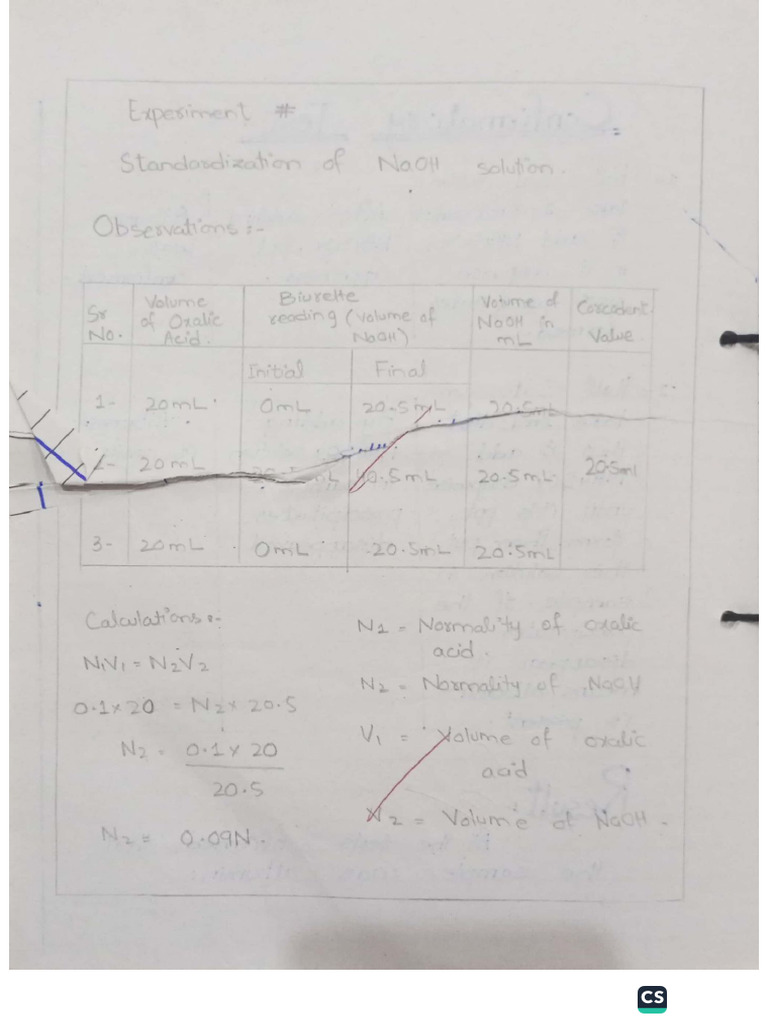 Experiment #
Standardization of NaOH solution.
Observations :-
Sr No.
Volume of Oxalic Acid.
Biurette reading (volume of NaOH)
Volume of NaOH in mL
Corcodent Value
Initial
Final
1- 20mL 0mL 20.5mL 20.5mL
2- 20mL 20.5mL 20.5mL 20.5ml
3- 20mL 0mL 20.5mL 20.5mL
Calculations :-
N1V1 = N2V2
0.1 x 20 = N2 x 20.5
N2 = 0.1 x 20
20.5
N2 = 0.09N.
N1 = Normality of oxalic
acid.
N2 = Normality of NaOH
V1 = Volume of oxalic
acid
V2 = Volume of NaOH.
CS